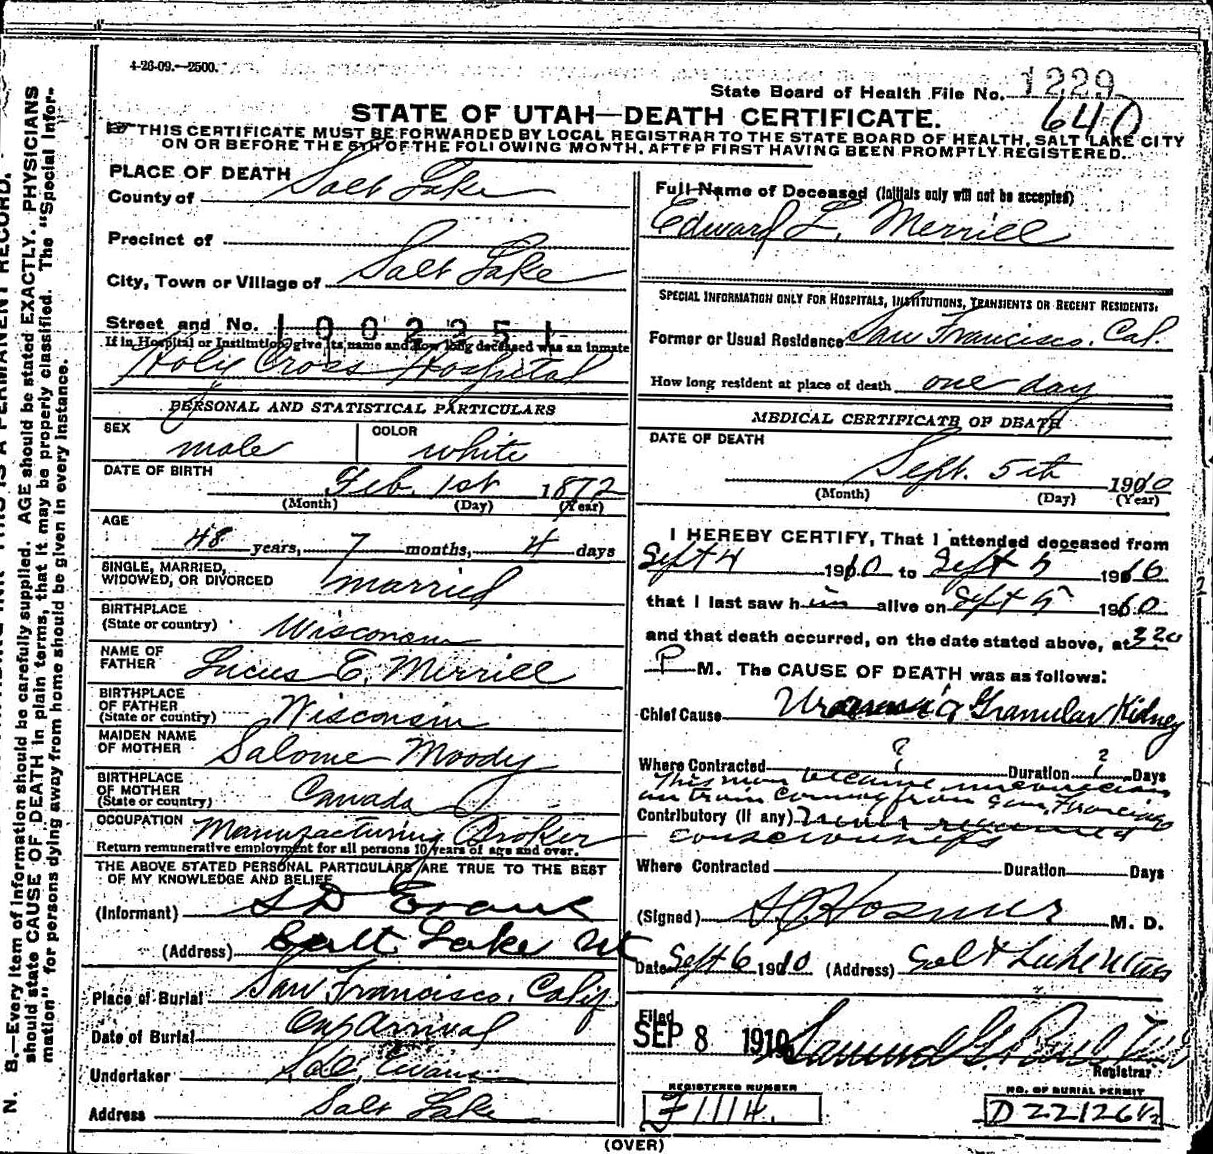 4-26-09.—2500.
State Board of Health File No. 1229
640
STATE OF UTAH—DEATH CERTIFICATE.
THIS CERTIFICATE MUST BE FORWARDED BY LOCAL REGISTRAR TO THE STATE BOARD OF HEALTH, SALT LAKE CITY
ON OR BEFORE THE 5TH OF THE FOLLOWING MONTH, AFTER FIRST HAVING BEEN PROMPTLY REGISTERED.
N. B.—Every item of information should be carefully supplied. AGE should be stated EXACTLY. PHYSICIANS
should state CAUSE OF DEATH in plain terms, that it may be properly classified. The "Special Infor-
mation" for persons dying away from home should be given in every instance.
THIS IS A PERMANENT RECORD.
PLACE OF DEATH
County of Salt Lake
Precinct of
City, Town or Village of Salt Lake
Street and No. 1902251
If in Hospital or Institution give its name and how long deceased was an inmate
Holy Cross Hospital
PERSONAL AND STATISTICAL PARTICULARS
SEX male COLOR white
DATE OF BIRTH Feb. 1st 1872
(Month) (Day) (Year)
AGE 48 years, 7 months, 4 days
SINGLE, MARRIED, WIDOWED, OR DIVORCED married
BIRTHPLACE (State or country) Wisconsin
NAME OF FATHER Lucus E. Merrill
BIRTHPLACE OF FATHER (State or country) Wisconsin
MAIDEN NAME OF MOTHER Salome Moody
BIRTHPLACE OF MOTHER (State or country) Canada
OCCUPATION Manufacturing Broker
Return remunerative employment for all persons 10 years of age and over.
THE ABOVE STATED PERSONAL PARTICULARS ARE TRUE TO THE BEST
OF MY KNOWLEDGE AND BELIEF
(Informant) S D Evans
(Address) Salt Lake Ut
Place of Burial San Francisco, Calif
Date of Burial On Arrival
Undertaker S.D. Evans
Address Salt Lake
Full Name of Deceased (Initials only will not be accepted)
Edward L. Merrill
SPECIAL INFORMATION ONLY FOR HOSPITALS, INSTITUTIONS, TRANSIENTS OR RECENT RESIDENTS:
Former or Usual Residence San Francisco. Cal.
How long resident at place of death one day
MEDICAL CERTIFICATE OF DEATH
DATE OF DEATH
Sept. 5th 1910
(Month) (Day) (Year)
I HEREBY CERTIFY, That I attended deceased from
Sept 4 1910 to Sept 5 1910
that I last saw him alive on Sept 5 1910
and that death occurred, on the date stated above, at 2 20
P M. The CAUSE OF DEATH was as follows:
Chief Cause Uraemia Granular Kidney
Where Contracted ? Duration ? Days
This man became unconscious
on train coming from San Francisco
Contributory (if any) Never recovered
consciousness
Where Contracted Duration Days
(Signed) Hosmer M. D.
Date Sept 6 1910 (Address) Salt Lake Utah
Filed
SEP 8 1910 Samuel G. Paul
Registrar
REGISTERED NUMBER
F 1114.
NO. OF BURIAL PERMIT
D 22126½
(OVER)